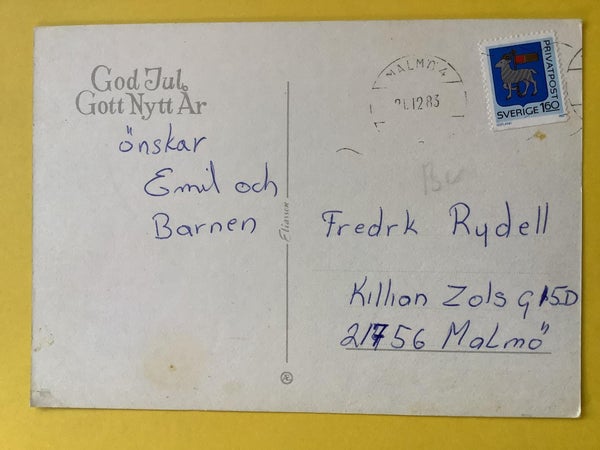 God Jul
Gott Nytt År
önskar
Emil och
Barnen
Eliason
MALMÖ 4
21.12.83
PRIVATPOST
SVERIGE 160
Fredrk Rydell
Killian Zols g 15D
21756 Malmö